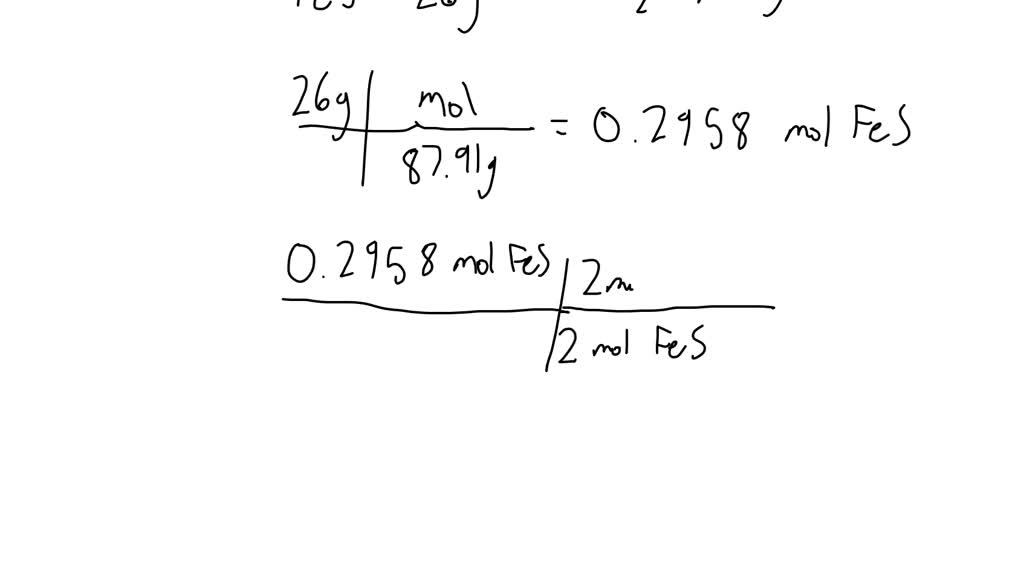 26g | mol
87.91g = 0.2958 mol FeS
0.2958 mol FeS | 2m
2 mol FeS